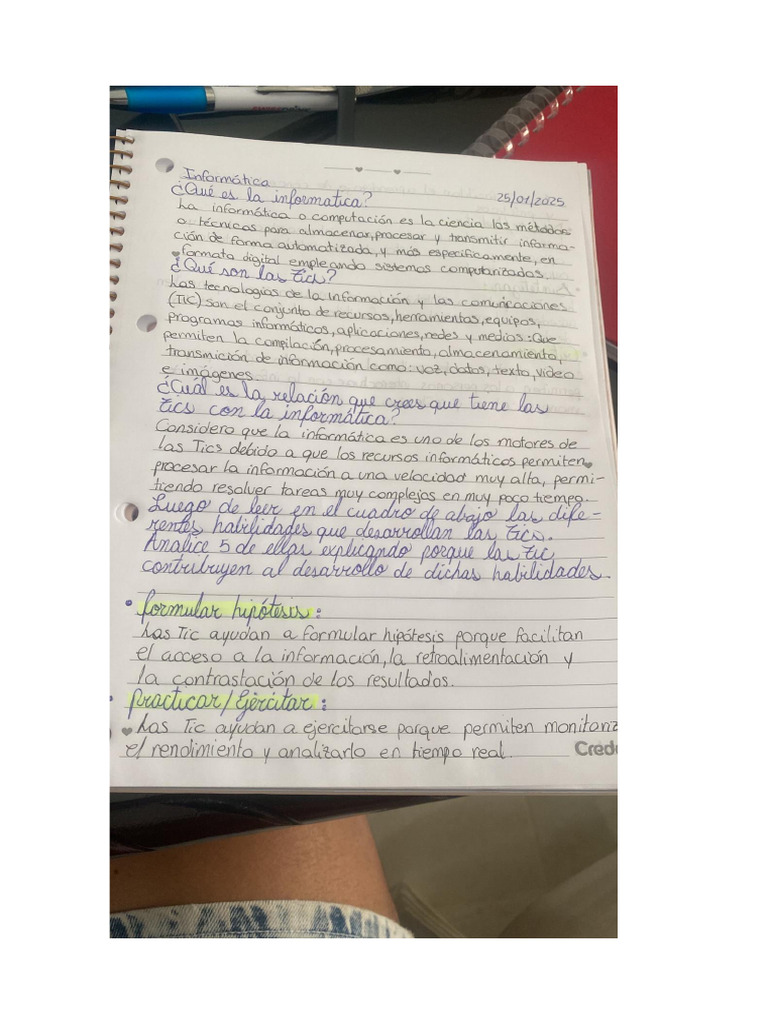 Informática
25/01/2025
¿Qué es la informatica?
La informática o computación es la ciencia las métodos
o técnicas para almacenar, procesar y transmitir informa-
ción de forma automatizada, y más específicamente, en
formato digital empleando sistemas computarizados.
¿Qué son las tics?
Las tecnologías de la información y las comunicaciones
(TIC) son el conjunto de recursos, herramientas, equipos,
programas informáticos, aplicaciones, redes y medios: Que
permiten la compilación, procesamiento, almacenamiento,
transmición de información como: voz, datos, texto, video
e imágenes.
¿Cuál es la relación que crees que tiene las
tics con la informática?
Considero que la informática es uno de los motores de
las Tics debido a que los recursos informáticos permiten
procesar la información a una velocidad muy alta, permi-
tiendo resolver tareas muy complejas en muy poco tiempo.
Luego de leer en el cuadro de abajo las dife-
rentes habilidades que desarrollan las tics.
Analice 5 de ellas explicando porque las tic
contribuyen al desarrollo de dichas habilidades.
• formular hipótesis:
Las Tic ayudan a formular hipótesis porque facilitan
el acceso a la información, la retroalimentación y
la contrastación de los resultados.
• practicar/Ejercitar:
Las Tic ayudan a ejercitarse porque permiten monitanz
el rendimiento y analizarlo en tiempo real.